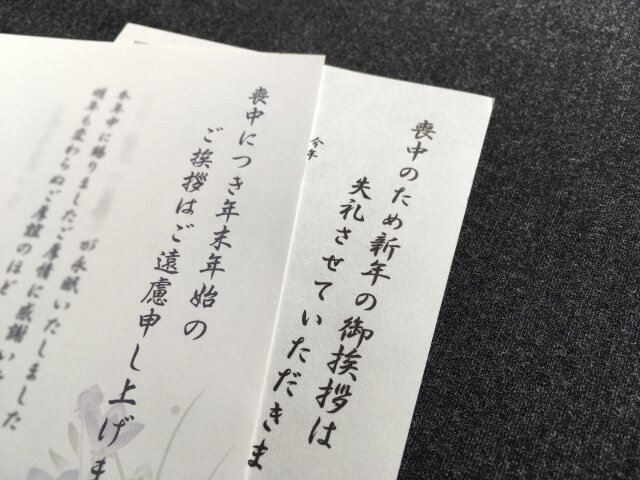 喪中のため新年の御挨拶は
失礼させていただきま
今年
喪中につき年末年始の
ご挨拶はご遠慮申し上げま
が永眠いたしました
本年中に賜りましたご厚情に感謝いた
明年も変わらぬご厚誼のほど